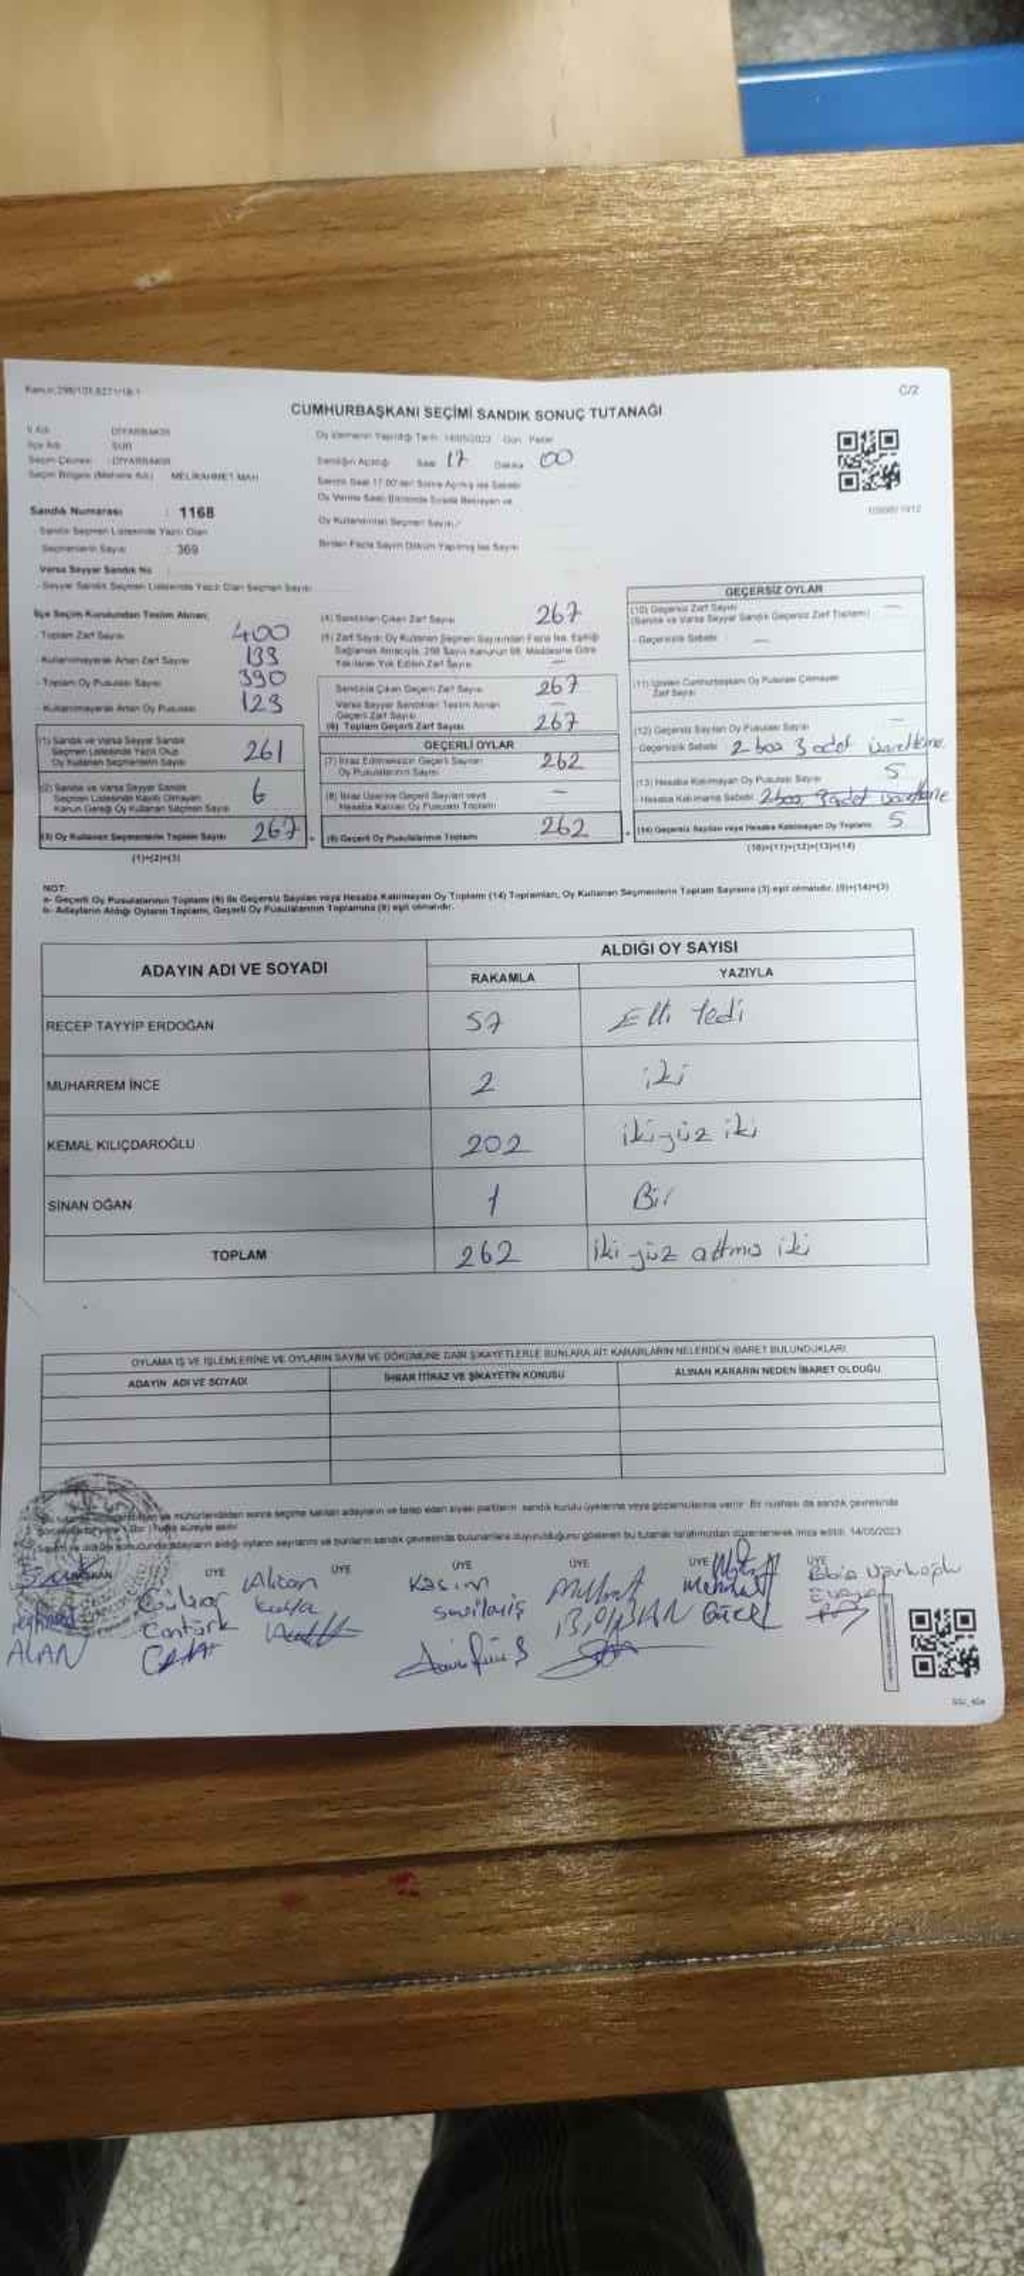 C/2
CUMHURBAŞKANI SEÇİMİ SANDIK SONUÇ TUTANAĞI
İl Adı : DİYARBAKIR
İlçe Adı : SUR
Seçim Çevresi : DİYARBAKIR
Seçim Bölgesi (Mahalle Adı) : MELİKAHMET MAH
Sandık Numarası : 1168
Sandık Seçmen Listesinde Yazılı Olan
Seçmenlerin Sayısı : 369
Varsa Seyyar Sandık No
- Seyyar Sandık Seçmen Listesinde Yazılı Olan Seçmen Sayısı
Oy Vermenin Yapıldığı Tarih : 14/05/2023 Gün : Pazar
Sandığın Açıldığı Saat 17 Dakika 00
Sandık Saat 17.00'den Sonra Açılmış ise Sebebi
Oy Verme Saati Bitiminde Sırada Bekleyen ve
Oy Kullandırılan Seçmen Sayısı
Birden Fazla Sayım Döküm Yapılmış İse Sayısı
İlçe Seçim Kurulundan Teslim Alınan;
- Toplam Zarf Sayısı 400
- Kullanılmayarak Artan Zarf Sayısı 133
- Toplam Oy Pusulası Sayısı 390
- Kullanılmayarak Artan Oy Pusulası 123
(1) Sandık ve Varsa Seyyar Sandık
Seçmen Listesinde Yazılı Olup
Oy Kullanan Seçmenlerin Sayısı 261
(2) Sandık ve Varsa Seyyar Sandık
Seçmen Listesinde Kayıtlı Olmayan
Kanun Gereği Oy Kullanan Seçmen Sayısı 6
(3) Oy Kullanan Seçmenlerin Toplam Sayısı 267
(1)+(2)=(3)
(4) Sandıktan Çıkan Zarf Sayısı 267
(5) Zarf Sayısı Oy Kullanan Seçmen Sayısından Fazla İse, Eşitliği
Sağlamak Amacıyla, 298 Sayılı Kanunun 98. Maddesine Göre
Yakılarak Yok Edilen Zarf Sayısı —
Sandıkta Çıkan Geçerli Zarf Sayısı 267
Varsa Seyyar Sandıktan Teslim Alınan
Geçerli Zarf Sayısı —
(6) Toplam Geçerli Zarf Sayısı 267
GEÇERLİ OYLAR
(7) İtiraz Edilmeksizin Geçerli Sayılan
Oy Pusulalarının Sayısı 262
(8) İtiraz Üzerine Geçerli Sayılan veya
Hesaba Katılan Oy Pusulası Toplamı —
(9) Geçerli Oy Pusulalarının Toplamı 262
GEÇERSİZ OYLAR
(10) Geçersiz Zarf Sayısı —
(Sandık ve Varsa Seyyar Sandık Geçersiz Zarf Toplamı)
- Geçersizlik Sebebi —
(11) İçinden Cumhurbaşkanı Oy Pusulası Çıkmayan
Zarf Sayısı —
(12) Geçersiz Sayılan Oy Pusulası Sayısı
Geçersizlik Sebebi 2 boş 3 adet
5
(13) Hesaba Katılmayan Oy Pusulası Sayısı
- Hesaba Katılmama Sebebi 2 boş 3 adet
(14) Geçersiz Sayılan veya Hesaba Katılmayan Oy Toplamı 5
(10)+(11)+(12)+(13)=(14)
NOT:
a- Geçerli Oy Pusulalarının Toplamı (9) ile Geçersiz Sayılan veya Hesaba Katılmayan Oy Toplamı (14) Toplamları, Oy Kullanan Seçmenlerin Toplam Sayısına (3) eşit olmalıdır. (9)+(14)=(3)
b- Adayların Aldığı Oyların Toplamı, Geçerli Oy Pusulalarının Toplamına (9) eşit olmalıdır.
ADAYIN ADI VE SOYADI ALDIĞI OY SAYISI
RAKAMLA YAZIYLA
RECEP TAYYİP ERDOĞAN 57 Elli Yedi
MUHARREM İNCE 2 iki
KEMAL KILIÇDAROĞLU 202 iki yüz iki
SİNAN OĞAN 1 Bir
TOPLAM 262 iki yüz altmış iki
OYLAMA İŞ VE İŞLEMLERİNE VE OYLARIN SAYIM VE DÖKÜMÜNE DAİR ŞİKAYETLERLE BUNLARA AİT KARARLARIN NELERDEN İBARET BULUNDUKLARI
ADAYIN ADI VE SOYADI İHBAR İTİRAZ VE ŞİKAYETİN KONUSU ALINAN KARARIN NEDEN İBARET OLDUĞU
mühürlendikten sonra seçime katılan adayların ve talep eden siyasi partilerin sandık kurulu üyelerine veya gözlemcilerine verilir. Bir nüshası da sandık çevresinde
adayların aldığı oyların sayılarını ve bunların sandık çevresinde bulunanlara duyurulduğunu gösteren bu tutanak tarafımızdan düzenlenerek imza edildi. 14/05/2023
BAŞKAN ÜYE ÜYE ÜYE ÜYE ÜYE ÜYE
ALAN
Gülbar
Cantürk
Alican
Kaya
Kasım
Sevilmiş
Mehmet
Gücel